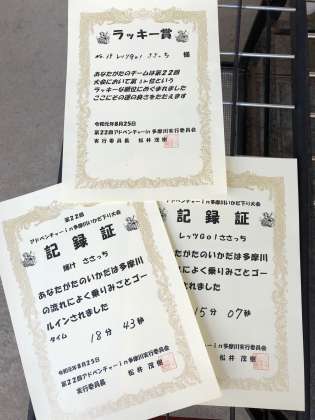 ラッキー賞
No.18 レッツGo! ささっち 様
あなたがたのチームは第22回
大会において第 位という
ラッキーな順位にめぐまれました
ここにその運の良さをたたえます
令和元年8月25日
第22回アドベンチャーin多摩川実行委員会
実行委員長 松井 茂樹
第22回
アドベンチャーin多摩川いかだ下り大会
記録証
輝け ささっち
あなたがたのいかだは多摩川
の流れによく乗りみごとゴー
ルインされました
タイム 18分 43秒
令和元年8月25日
第22回アドベンチャーin多摩川実行委員会
実行委員長 松井 茂樹
アドベンチャーin多摩川いかだ下り大会
記録証
レッツGo! ささっち
がたのいかだは多摩川
によく乗りみごとゴー
されました
15分 07秒
25日
チャーin多摩川実行委員会
松井 茂樹